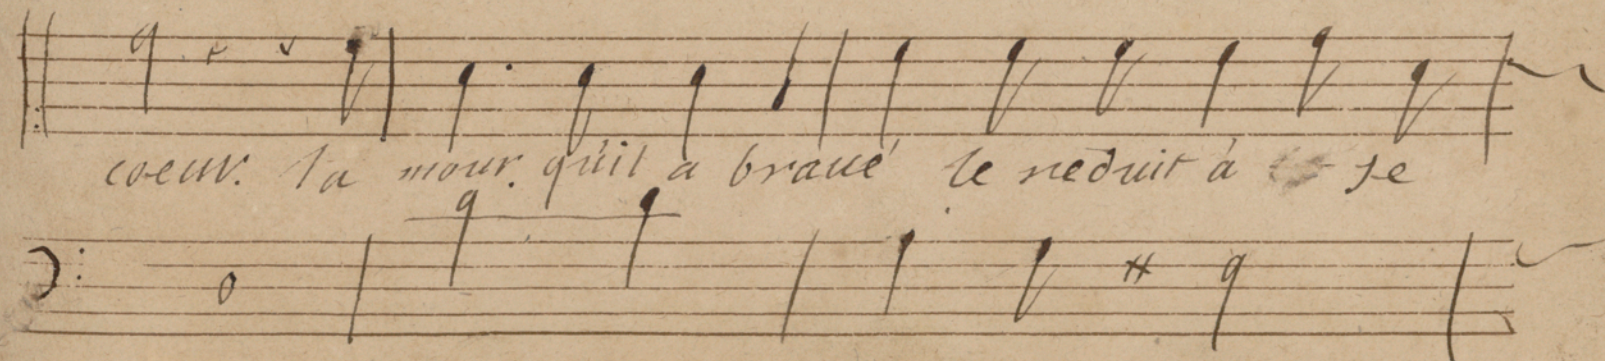 coeur. la mour. qu'il a braué le reduit à se